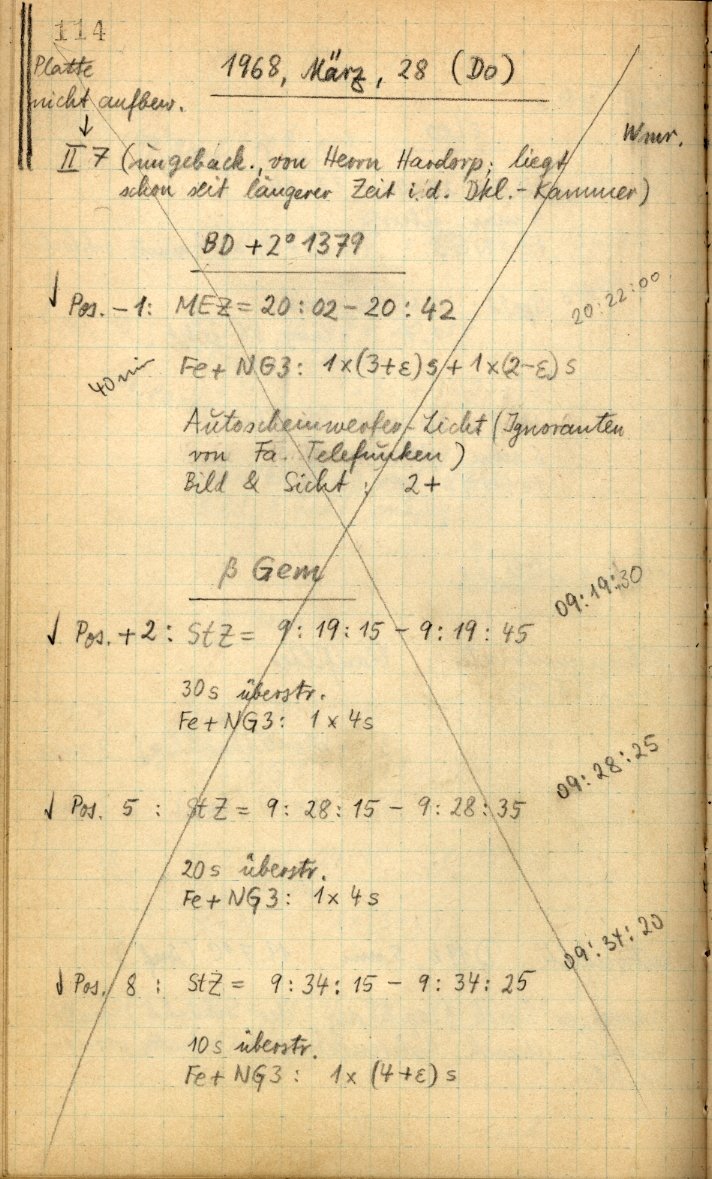 114
Platte
nicht aufbew.
↓
1968, März, 28 (Do)
Wmr.
II 7 (ungeback., von Herrn Hardorp; liegt
schon seit längerer Zeit i. d. Dkl.-Kammer)
BD +2° 1379
√ Pos. -1: MEZ = 20:02 - 20:42
20:22:00
40 min
Fe + NG3: 1x(3+ε)s + 1x(2-ε)s
Autoscheinwerfer-Licht (Ignoranten
von Fa. Telefunken)
Bild & Sicht: 2+
β Gem
√ Pos. +2: StZ = 9:19:15 - 9:19:45
09:19:30
30s überstr.
Fe + NG3: 1 x 4s
√ Pos. 5: StZ = 9:28:15 - 9:28:35
09:28:25
20s überstr.
Fe + NG3: 1 x 4s
√ Pos. 8: StZ = 9:34:15 - 9:34:25
09:34:20
10s überstr.
Fe + NG3: 1x (4+ε)s